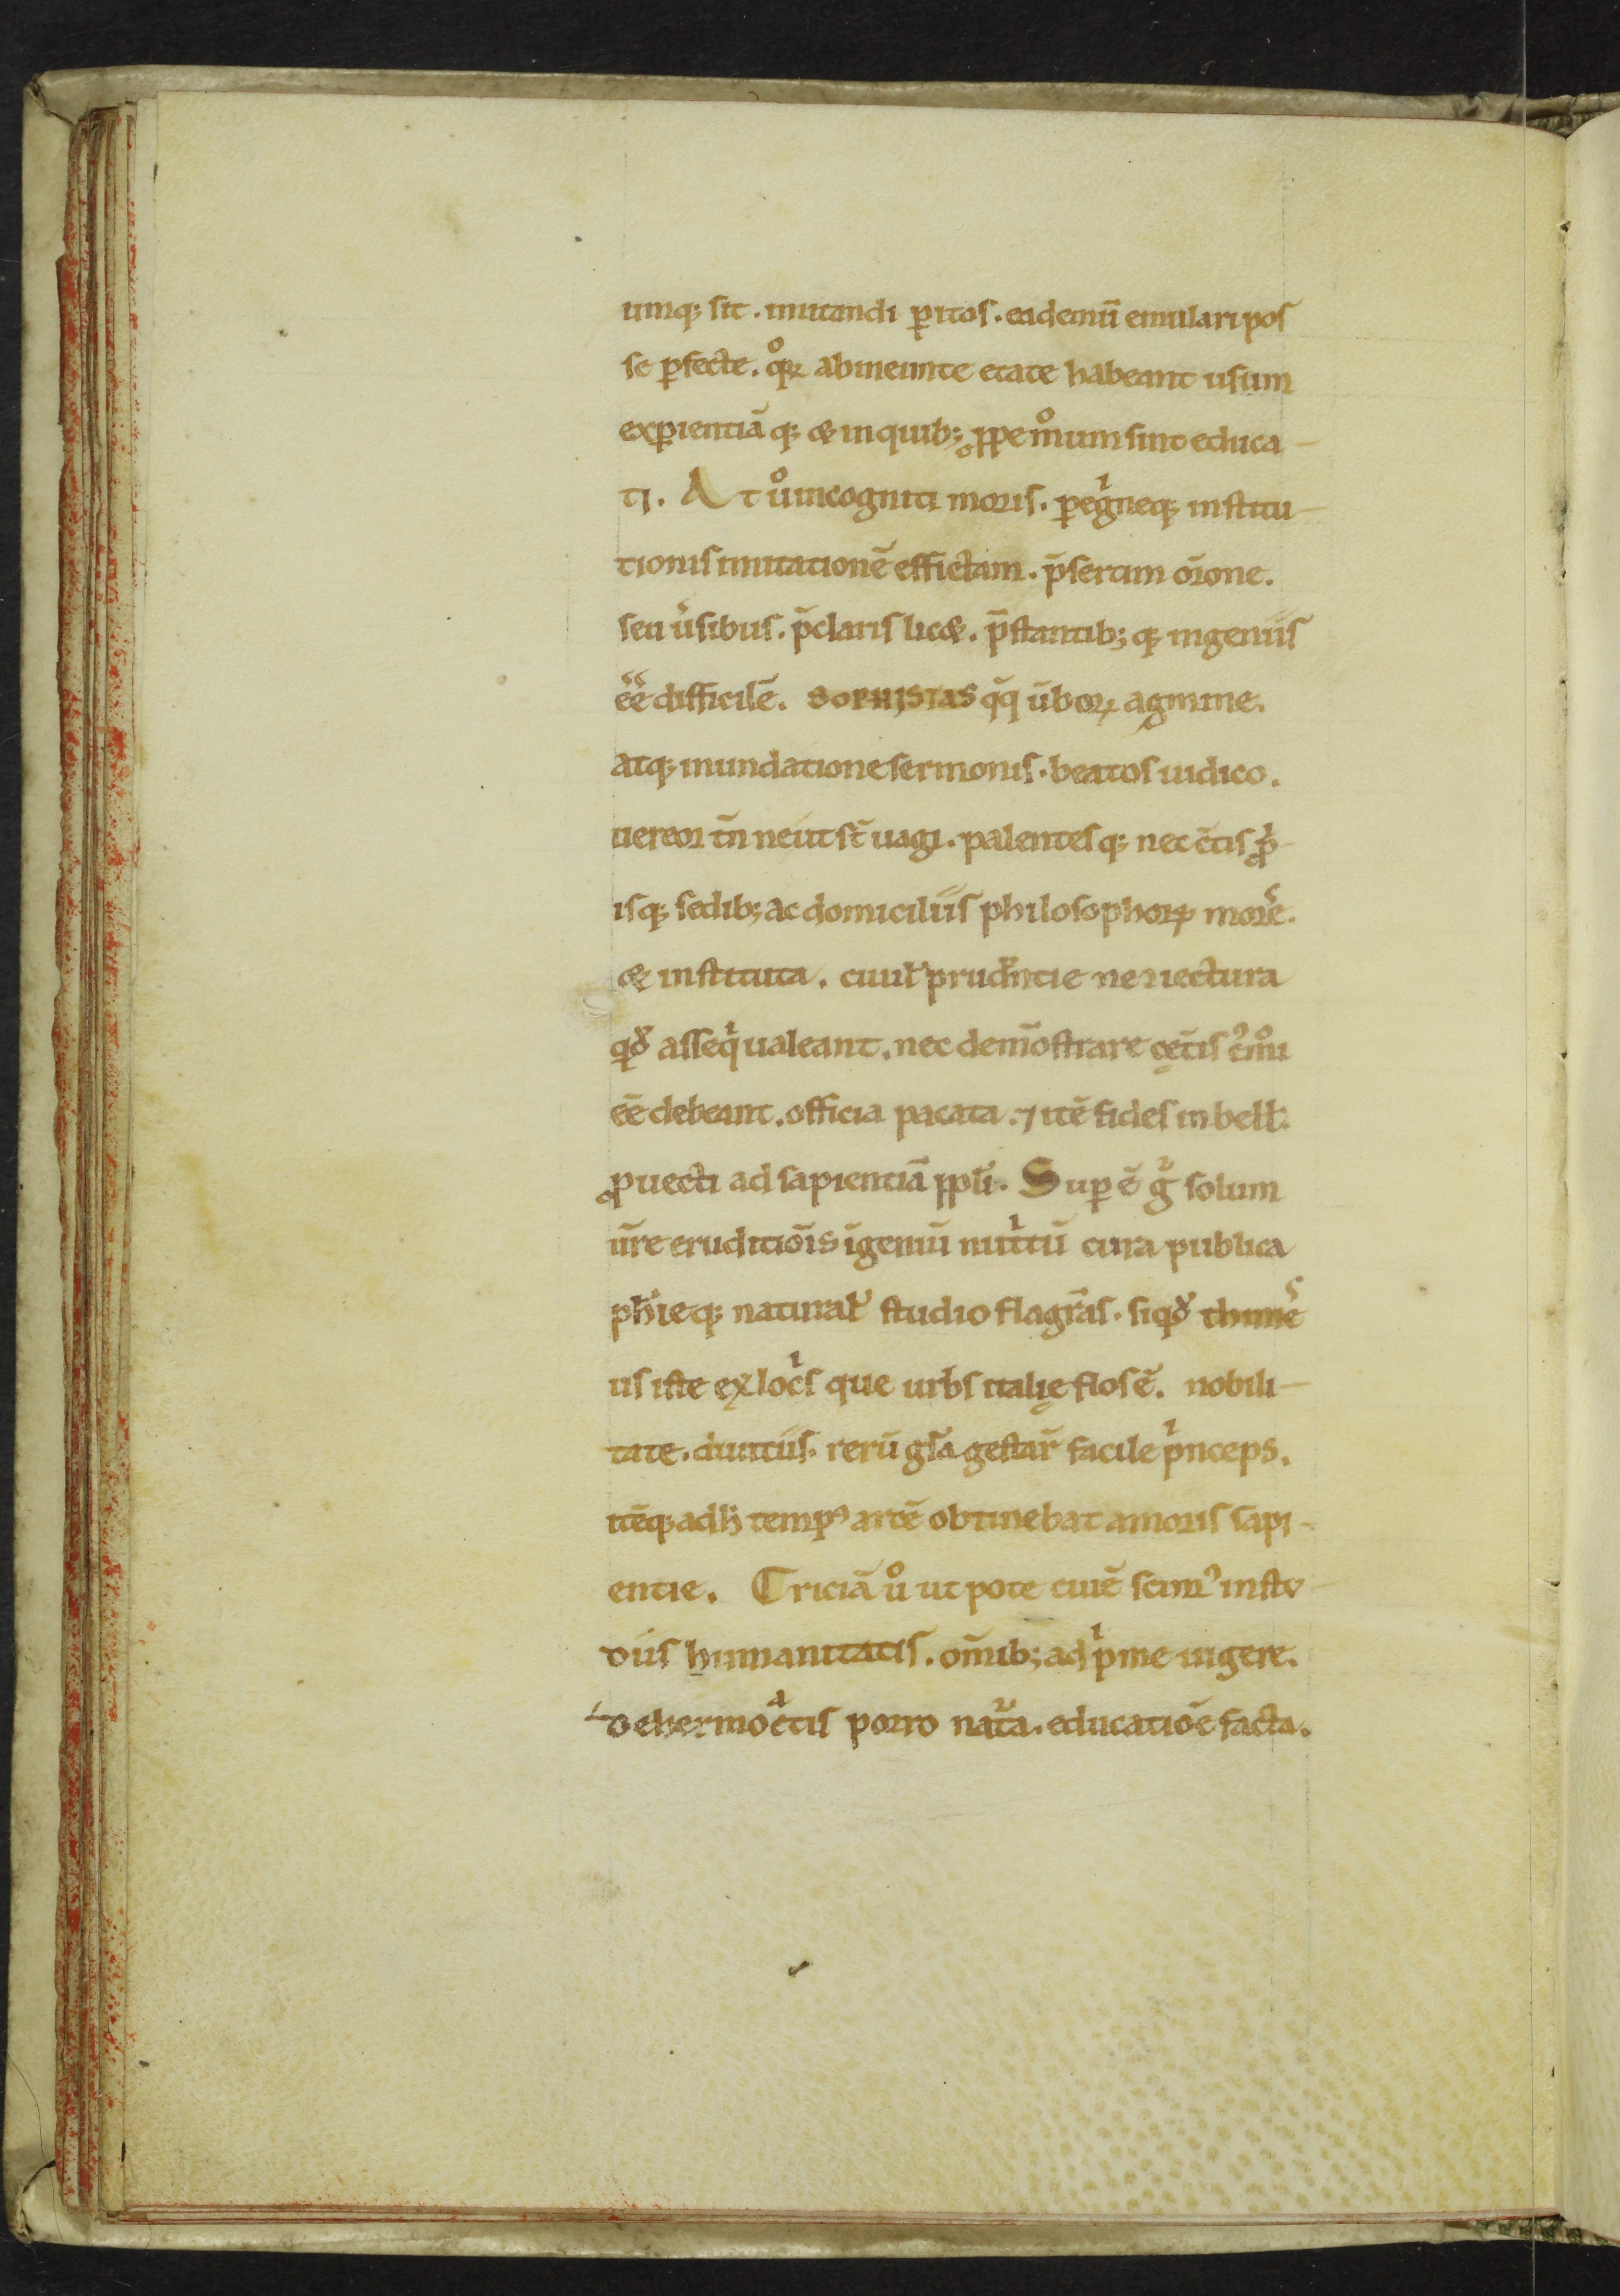 umq; sit . imitandi ꝑitos . eademū emulari pos
se ꝑfecte . qͦꝝ abineunte etate habeant usum
exꝑientiā q; & inquib; ꝓpemͦum sint educa-
ti . At uͦ incogniti moris . ꝑegͥneq; institu-
tionis imitationē effictam . p̄sertim or̄one .
seu u̓sibus . p̄claris lic& . p̄stantib; q; ingeniis
ēe difficilē . SOPHISTAS q̄q̄ ūboꝝ agmine .
atq; inundatione sermonis . beatos iudico .
uereor tn̄ neut st̄ uagi . palentes q; nec c̄tis ꝓpͥ-
isq; sedib; ac domiciliis philosophoꝝ more .
& instituta . ciuil̓ prudn̄tie ne niectura
qd̓ asseqͥ ualeant . nec demōstrare cęt̄is
ēe debeant . officia pacata . ⁊ itē fides in bell̓ .
ꝓuecti ad sapientiā ppl̓i . Suꝑ ē gͦ solum
ur̄e eruditiōis īgeniū nutͥtū cura publica
ph̓ieq; natural̓ studio flagrās . siqd̓ thime̓
us iste ex locͥs que urbs italię flos ē . nobili-
tate . diuitiis . rerū gl̄a gestar̄ facile pͥnceps .
itēq; adh̓ tempꝰ artē obtinebat amoris sapi-
entie . Criciā uͦ utpote ciuē scimꝰ instv
diis humanitatis . om̄ib; adpͥme uigere .
De hermocᵃtis porro nat̄a . educatiōe facta .